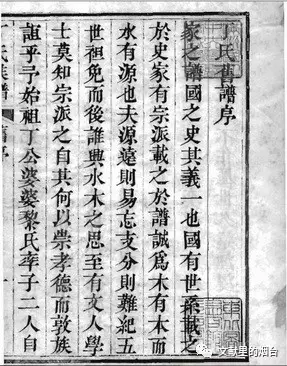 丁氏舊譜序
家之譜國之史其義一也國有世系載之
於史家有宗派載之於譜誠爲木有本而
水有源也夫源遠則易忘支分則難紀五
世祖免而後誰興水木之思至有文人學
士莫知宗派之自其何以崇孝德而敦族
誼乎予始祖丁公婆婆黎氏率子二人自
丁氏族譜
舊序
一
文献里的烟台